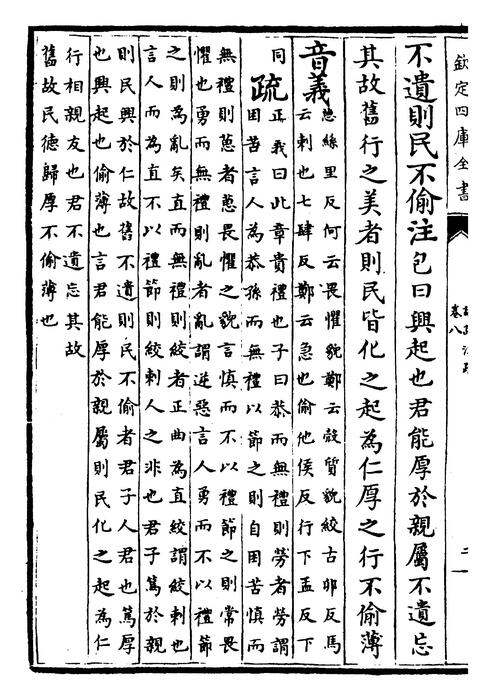 欽定四庫全書
卷八
不遺則民不偷注包曰興起也君能厚於親屬不遺忘
其故舊行之美者則民皆化之起為仁厚之行不偷薄
音義葸絲里反何云畏懼貌鄭云慤質貌絞古卯反馬
云刺也七肆反鄭云急也偷他侯反行下孟反下
同
疏正義曰此章貴禮也子曰恭而無禮則勞者勞謂
困苦言人為恭孫而無禮以節之則自困苦慎而
無禮則葸者葸畏懼之貌言慎而不以禮節之則常畏
懼也勇而無禮則亂者亂謂逆惡言人勇而不以禮節
之則為亂矣直而無禮則絞者正曲為直絞謂絞刺也
言人而為直不以禮節則絞刺人之非也君子篤於親
則民興於仁故舊不遺則民不偷者君子人君也篤厚
也興起也偷薄也言君能厚於親屬則民化之起為仁
行相親友也君不遺忘其故
舊故民德歸厚不偷薄也